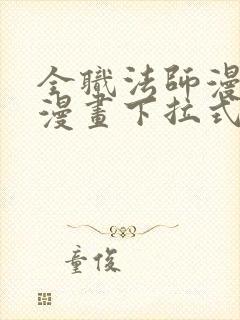 全職法師漫
漫畫下拉式
童俊